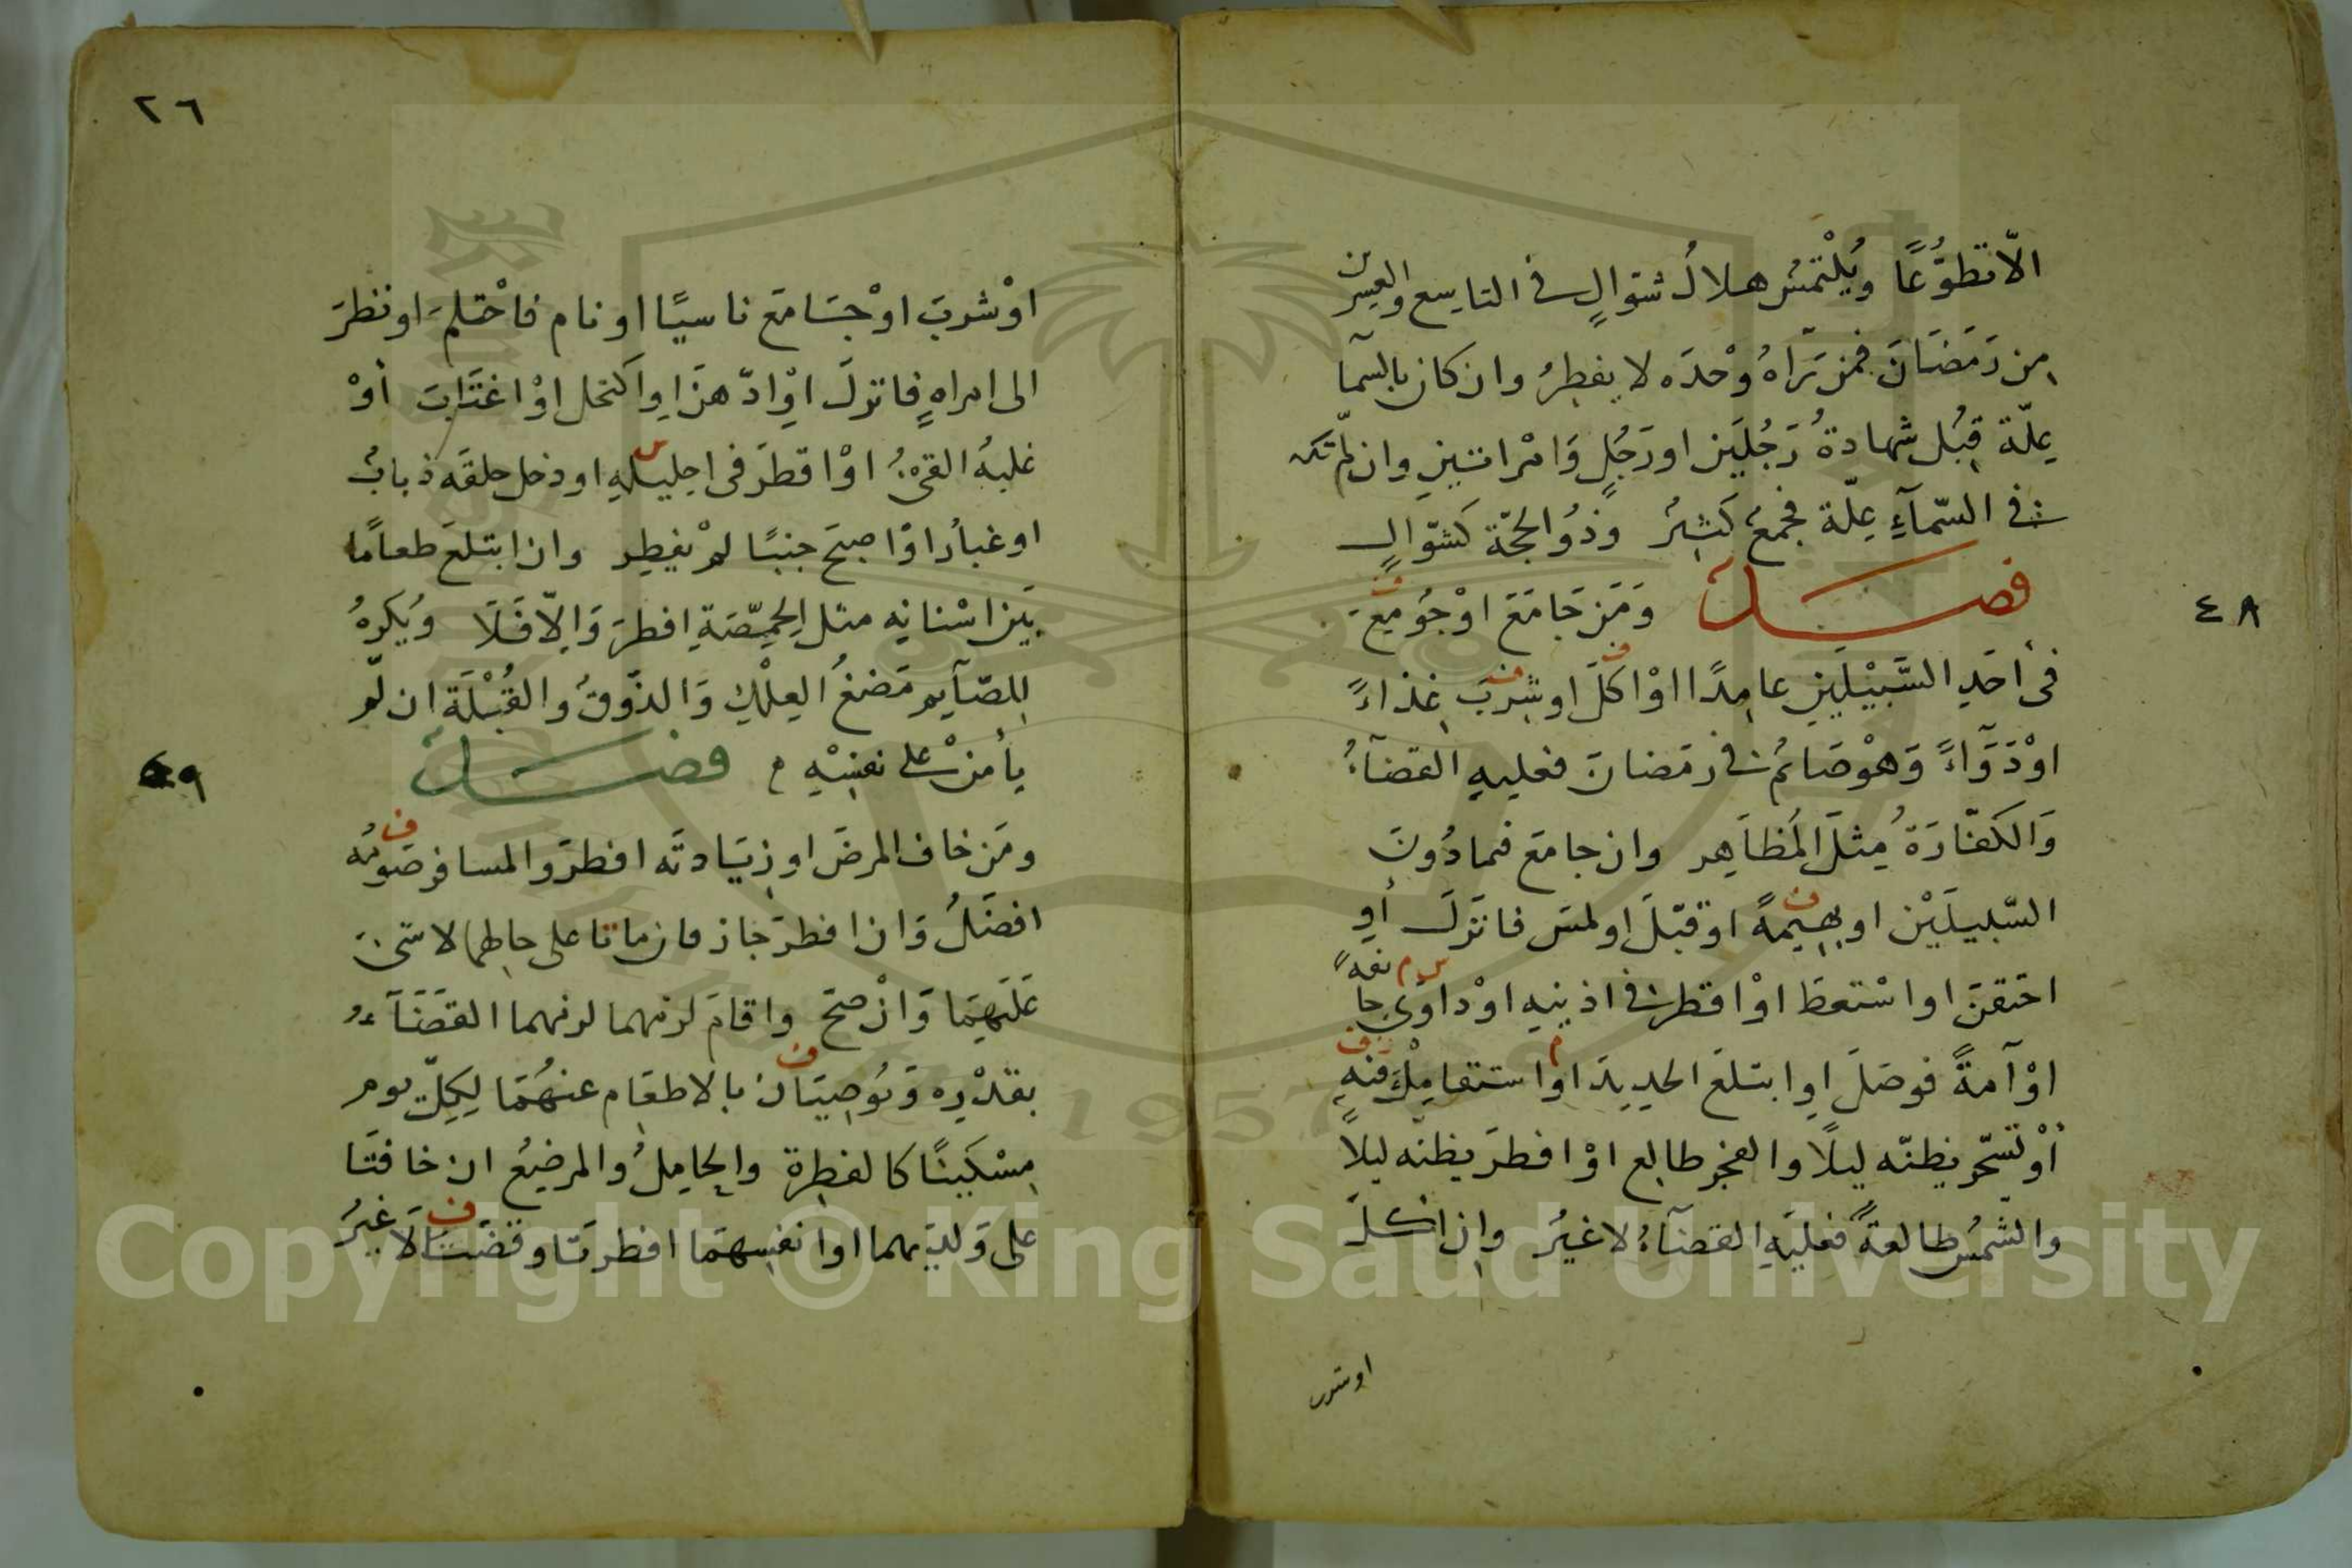 ٤٨
الّا تطوُّعًا ويُلْتمَسُ هلالُ شوالٍ في التاسع والعشرين
من رَمَضَانَ فمن رَآهُ وحْدَه لا يفطِرُ وان كان بالسمآ
عِلّة قُبِل شهادةُ رَجُلَين او رَجُلٍ وَامْراتين وان لم تكن
في السّمآءِ عِلّة فجمعٌ كثيرٌ وذُو الحجّة كشوّالٍ
فصل وَمَن جَامَعَ اوْ جُومِعَ
في أحَدِ السَّبِيْلَيْنِ عامِدًا اوْ اكلَ او شرِبَ غذاءً
اوْ دَوَآءً وَهْوَ صَائمٌ في رمَضانَ فعليهِ القضآءُ
وَالكفّارَةُ مِثلَ المُظاهِر وان جامعَ فيما دُونَ
السّبيلَيْن او بهيمةً او قبّلَ او لمسَ فانزلَ أوِ
احتقنَ او اسْتعطَ اوْ اقطر في اذنيه اوْ داوَى جايفةً
اوْ آمةً فوصَلَ او ابتلعَ الحديدَ او استقا مِلْءَ فيهِ
أوْ تسحّر يظنّه ليلًا والفجر طالع اوْ افطرَ يظنّه ليلاً
والشمسُ طالعةً فعليَهِ القضآءُ لا غيرُ وان اكلَ
او شرب
٢٦
اوْ شربَ اوْ جَامعَ ناسيًا او نام فاحْتلمَ او نظرَ
الى امراهٍ فانزلَ اوِ ادّهنَ اوِ اكتحل اوْ اغتَابَ أوْ
غلبهُ القئُ اوْ اقطرَ في احليله او دخل حلقَه ذبابٌ
او غبارٌ اوْ اصبحَ جنبًا لمْ يفطِر وان ابتلعَ طعامًا
بَين اسْنانِه مثل الحِمّصَةِ افطرَ وَاِلّا فَلَا وَيُكرهُ
للصّآيم مَضغُ العِلْكِ وَالذّوقُ والقُبْلَة ان لمْ
يأمنْ على نفسِهِ فصل
٤٩
ومَن خافَ المرضَ او زيَادتَه افطرَ والمسافر صَومُه
افضَلُ وَان افطرَ جَاز فان ماتا على حالِهما لا شئَ
عَلَيهِمَا وَانْ صحَّ واقامَ لزمهما القضَآءُ
بقدْرِه وَيُوصِيَان بالاطعَام عنهُمَا لِكلّ يوم
مِسْكينًا كالفطرة والحامِلُ والمرضِعُ ان خافتَا
على وَلدَيهما او انفسِهمَا افطرتَا وقضَتَا لَا غيرُ
Copyright © King Saud University
1957